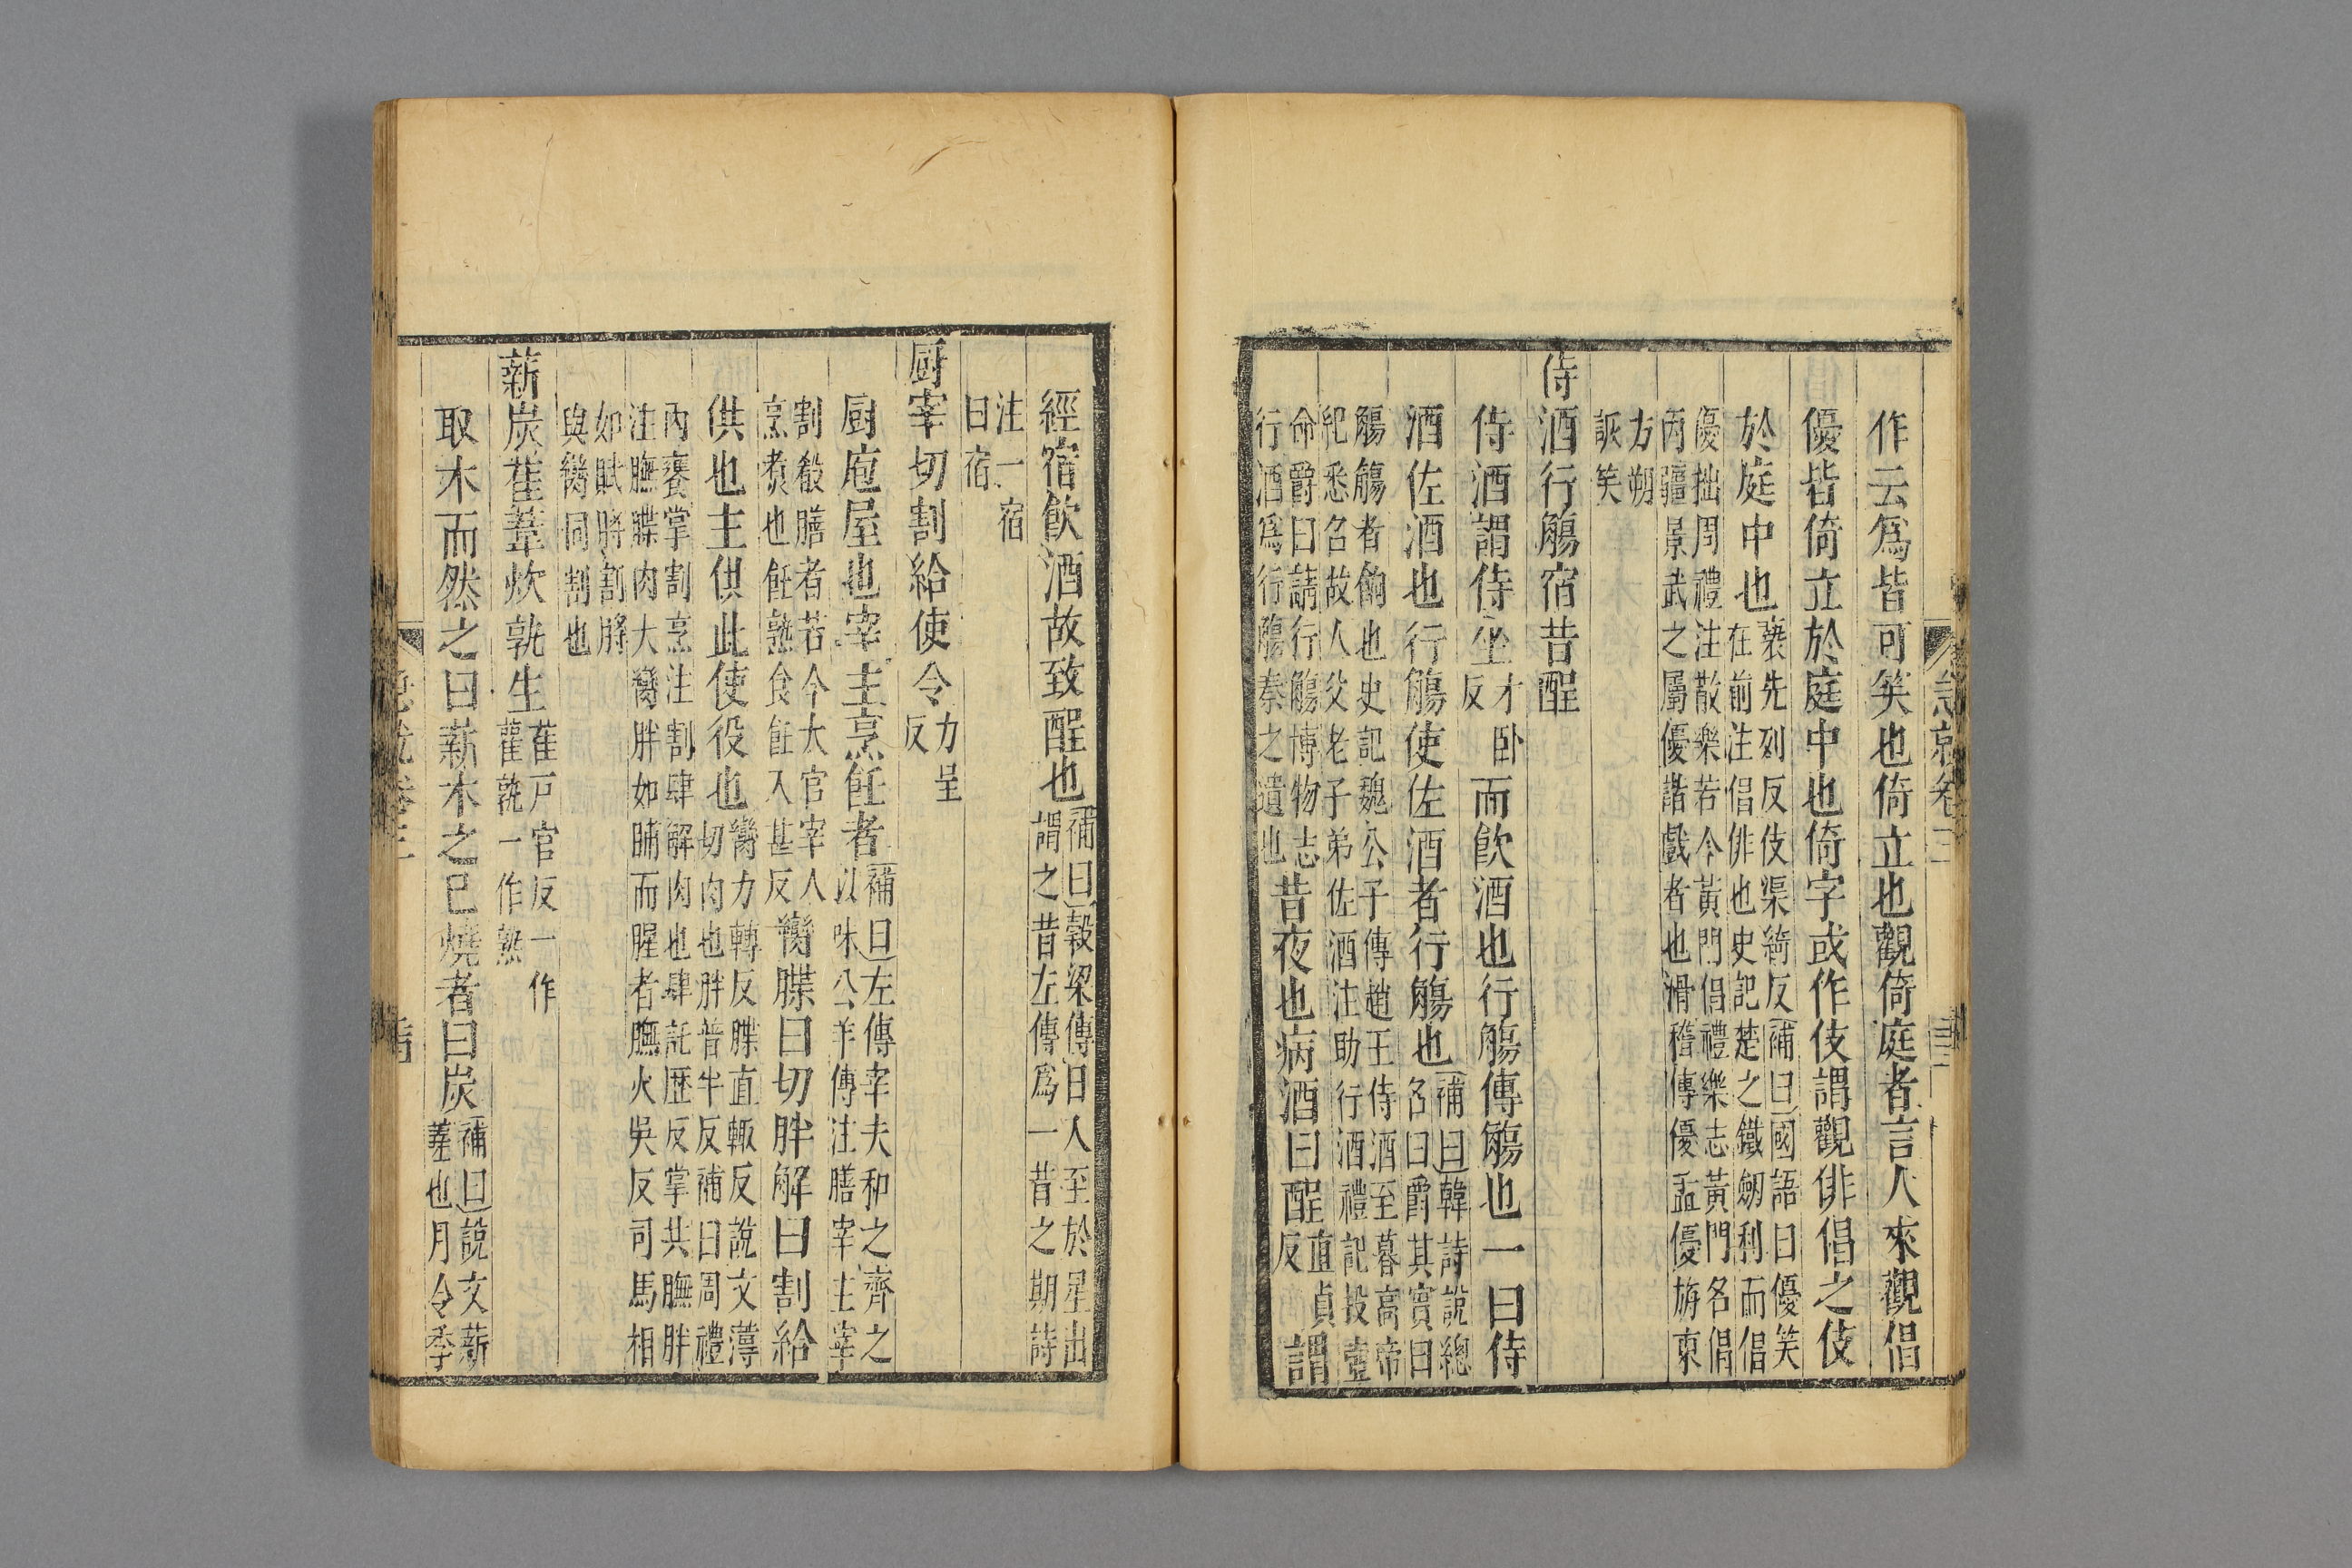 急就卷三
作云為皆可矣也倚立也觀倚庭者言人來觀倡
優皆倚立於庭中也倚字或作伎謂觀俳倡之伎
於庭中也䙝先列反伎渠綺反補曰國語曰優笑
在前注倡俳也史記楚之鐵劒利而倡
優拙周禮注散樂若今黃門倡禮樂志黃門名倡
丙疆景武之屬優諧戲者也滑稽傳優孟優旃東
方朔
詼笑
侍酒行觴宿昔酲
侍酒謂侍坐才卧反而飲酒也行觴傳觴也一曰侍
酒佐酒也行觴使佐酒者行觴也補曰韓詩說總
名曰爵其實曰
觴觴者餉也史記魏公子傳趙王侍酒至暮高帝
紀悉召故人父老子弟佐酒注助行酒禮記投壷
命爵曰請行觴博物志
行酒爲行觴秦之遺也昔夜也病酒曰酲直貞反謂
經宿飲酒故致酲也補曰穀梁傳日入至於星出
謂之昔左傳爲一昔之期詩
注一宿
曰宿
厨宰切割給使令力呈反
厨庖屋也宰主烹飪者補曰左傳宰夫和之齊之
以味公羊傳注膳宰主宰
割殺膳者若今大官宰人
烹煮也飪熟食飪入甚反臠䐑曰切胖解曰割給
供也主供此使役也臠力轉反䐑直輒反說文薄
切肉也胖普半反補曰周禮
內饔掌割烹注割肆解肉也肆託歷反掌共膴胖
注膴䐑肉大臠胖如脯而腥者膴火吳反司馬相
如賦脟割脟
與臠同割也
薪炭萑葦炊孰生萑戸官反一作
雚孰一作熟
取木而然之曰薪木之已燒者曰炭補曰說文薪
蕘也月令季